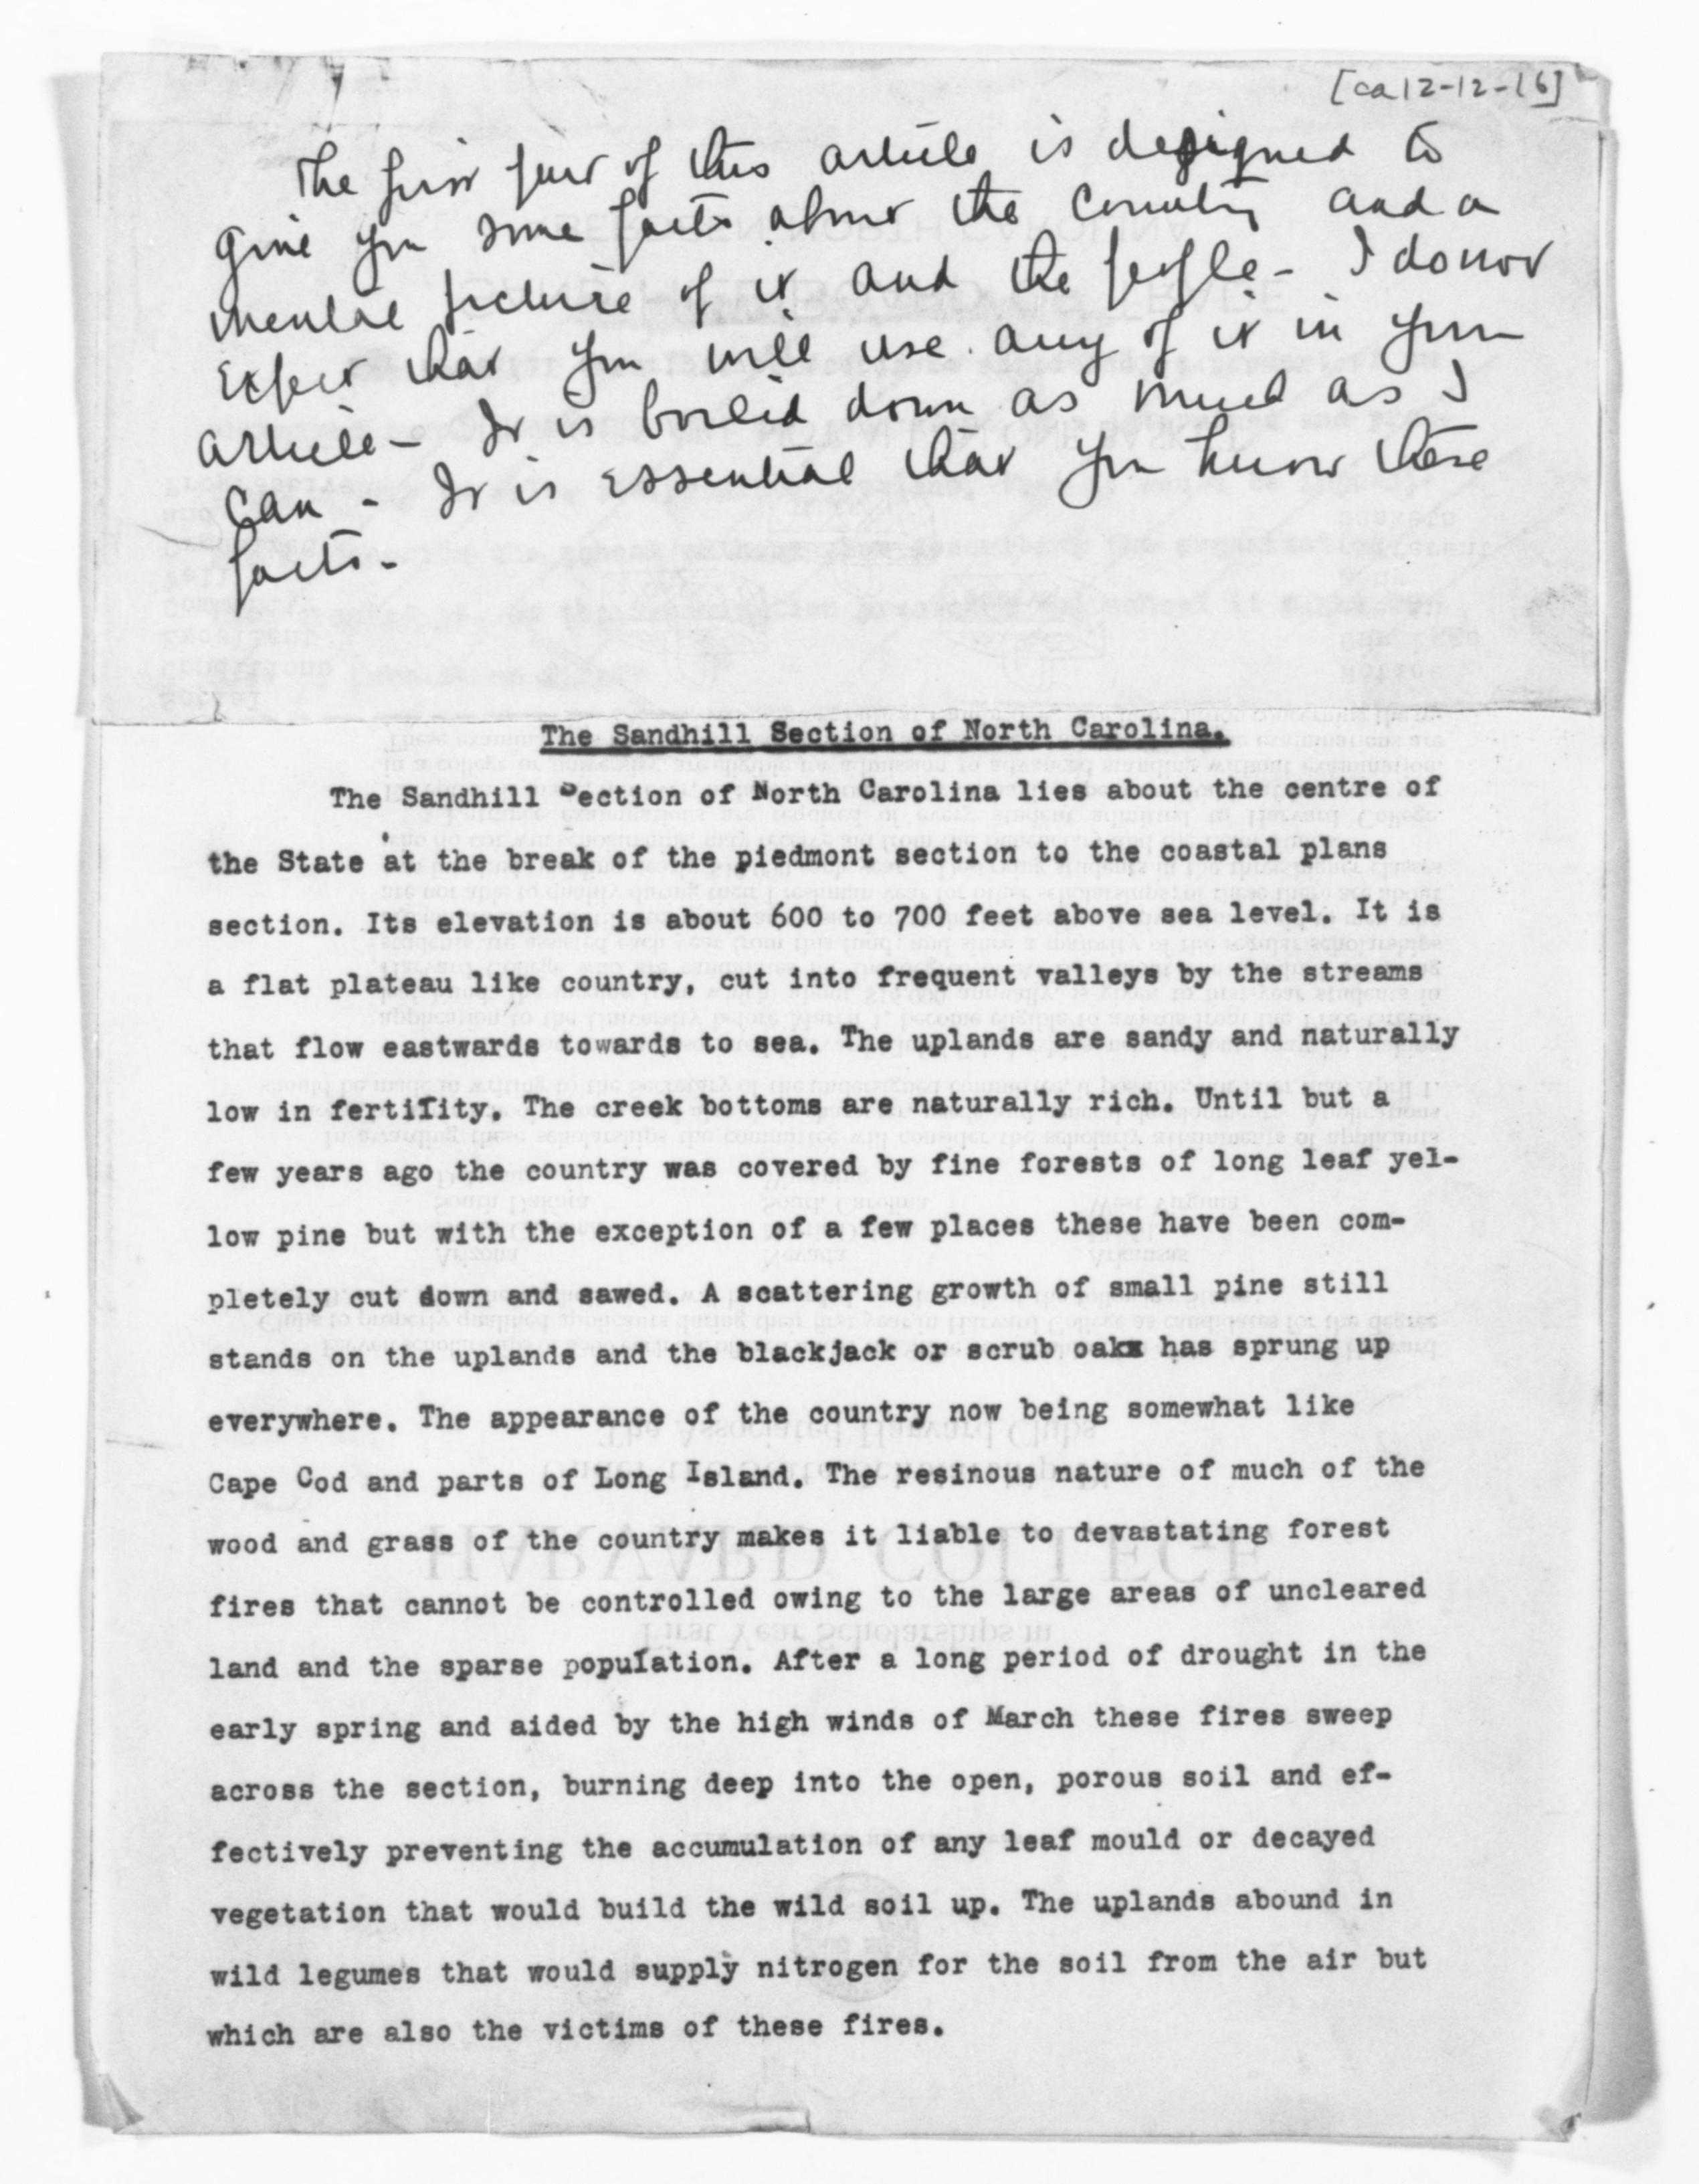 [ca 12-12-16]
The first part of this article is designed to
give you some facts about the Country and a
mental picture of it and the people - I do not
Expect that you will use any of it in your
article - It is boiled down as much as I
Can - It is Essential that you know these
facts -
The Sandhill Section of North Carolina.
The Sandhill Section of North Carolina lies about the centre of
the State at the break of the piedmont section to the coastal plans
section. Its elevation is about 600 to 700 feet above sea level. It is
a flat plateau like country, cut into frequent valleys by the streams
that flow eastwards towards to sea. The uplands are sandy and naturally
low in fertility. The creek bottoms are naturally rich. Until but a
few years ago the country was covered by fine forests of long leaf yel-
low pine but with the exception of a few places these have been com-
pletely cut down and sawed. A scattering growth of small pine still
stands on the uplands and the blackjack or scrub oakx has sprung up
everywhere. The appearance of the country now being somewhat like
Cape Cod and parts of Long Island. The resinous nature of much of the
wood and grass of the country makes it liable to devastating forest
fires that cannot be controlled owing to the large areas of uncleared
land and the sparse population. After a long period of drought in the
early spring and aided by the high winds of March these fires sweep
across the section, burning deep into the open, porous soil and ef-
fectively preventing the accumulation of any leaf mould or decayed
vegetation that would build the wild soil up. The uplands abound in
wild legumes that would supply nitrogen for the soil from the air but
which are also the victims of these fires.